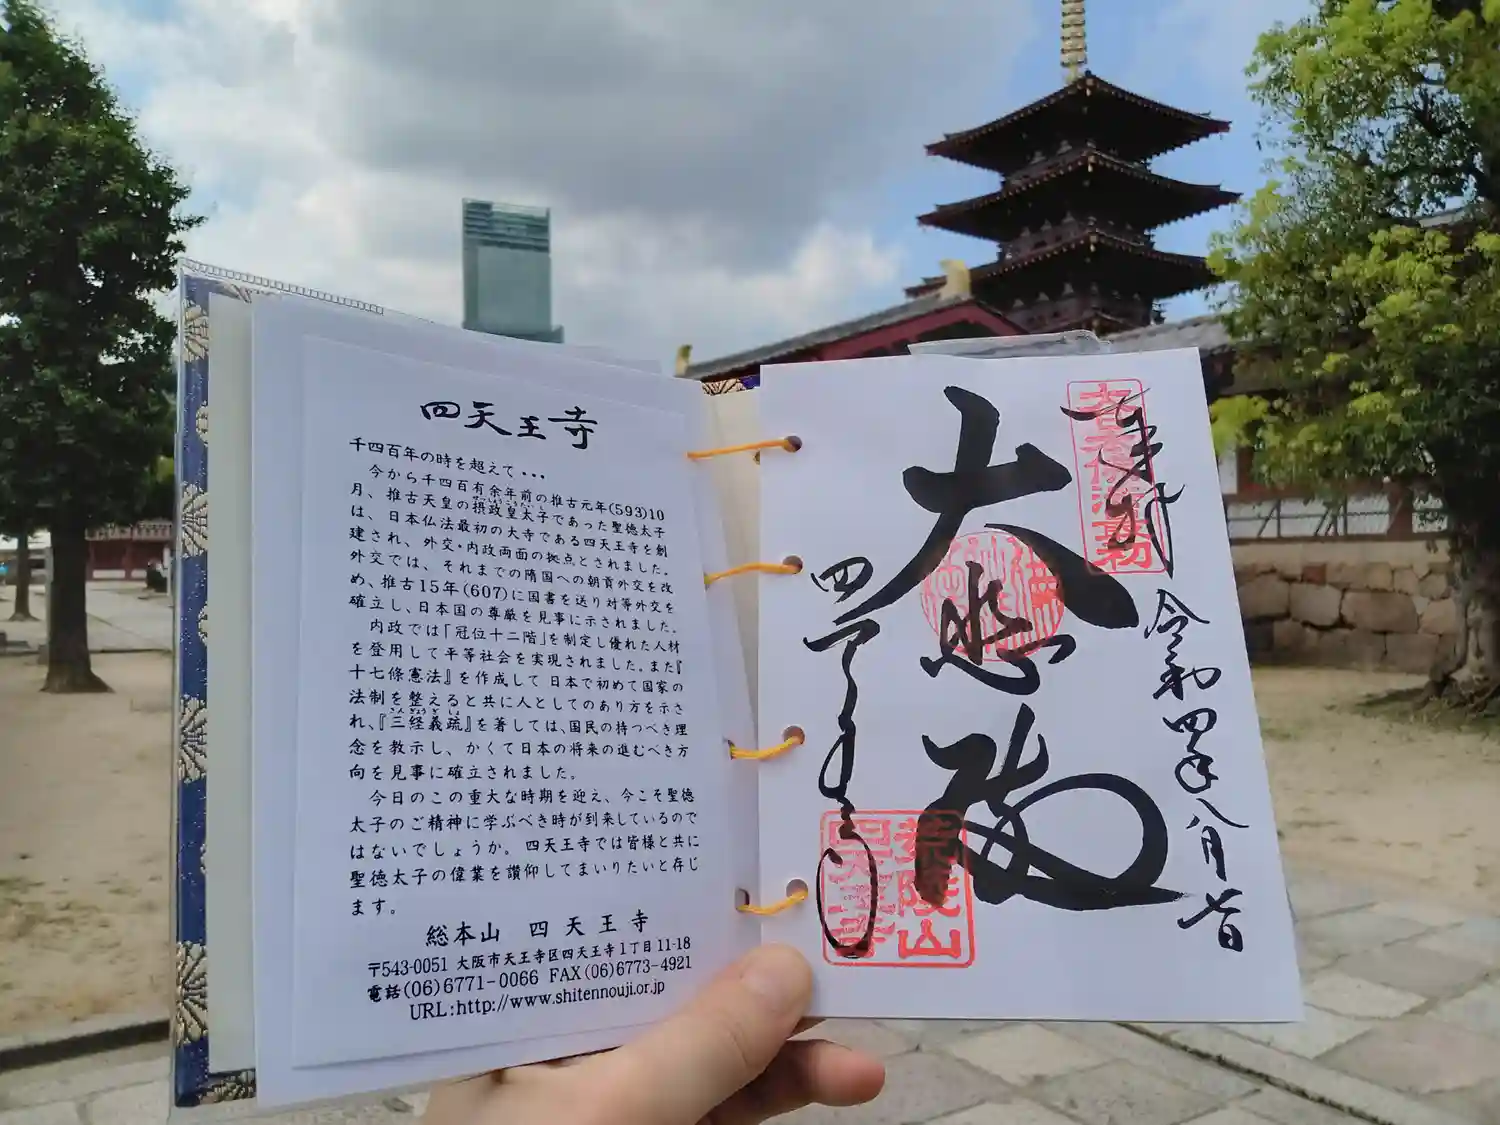 四天王寺
千四百年の時を超えて・・・
今から千四百有余年前の推古元年(593)10
月、推古天皇の摂政皇太子であった聖徳太子
は、日本仏法最初の大寺である四天王寺を創
建され、外交・内政両面の拠点とされました。
外交では、それまでの隋国への朝貢外交を改
め、推古15年(607)に国書を送り対等外交を
確立し、日本国の尊厳を見事に示されました。
内政では「冠位十二階」を制定し優れた人材
を登用して平等社会を実現されました。また『
十七條憲法』を作成して日本で初めて国家の
法制を整えると共に人としてのあり方を示さ
れ、『三経義疏』を著しては、国民の持つべき理
念を教示し、かくて日本の将来の進むべき方
向を見事に確立されました。
今日のこの重大な時期を迎え、今こそ聖徳
太子のご精神に学ぶべき時が到来しているので
はないでしょうか。四天王寺では皆様と共に
聖徳太子の偉業を讃仰してまいりたいと存じ
ます。
総本山 四天王寺
〒543-0051 大阪市天王寺区四天王寺1丁目11-18
電話(06)6771-0066 FAX(06)6773-4921
URL:http://www.shitennouji.or.jp
奉拝
令和四年八月七日
大悲殿
四天王寺
荒陵山
四天王寺